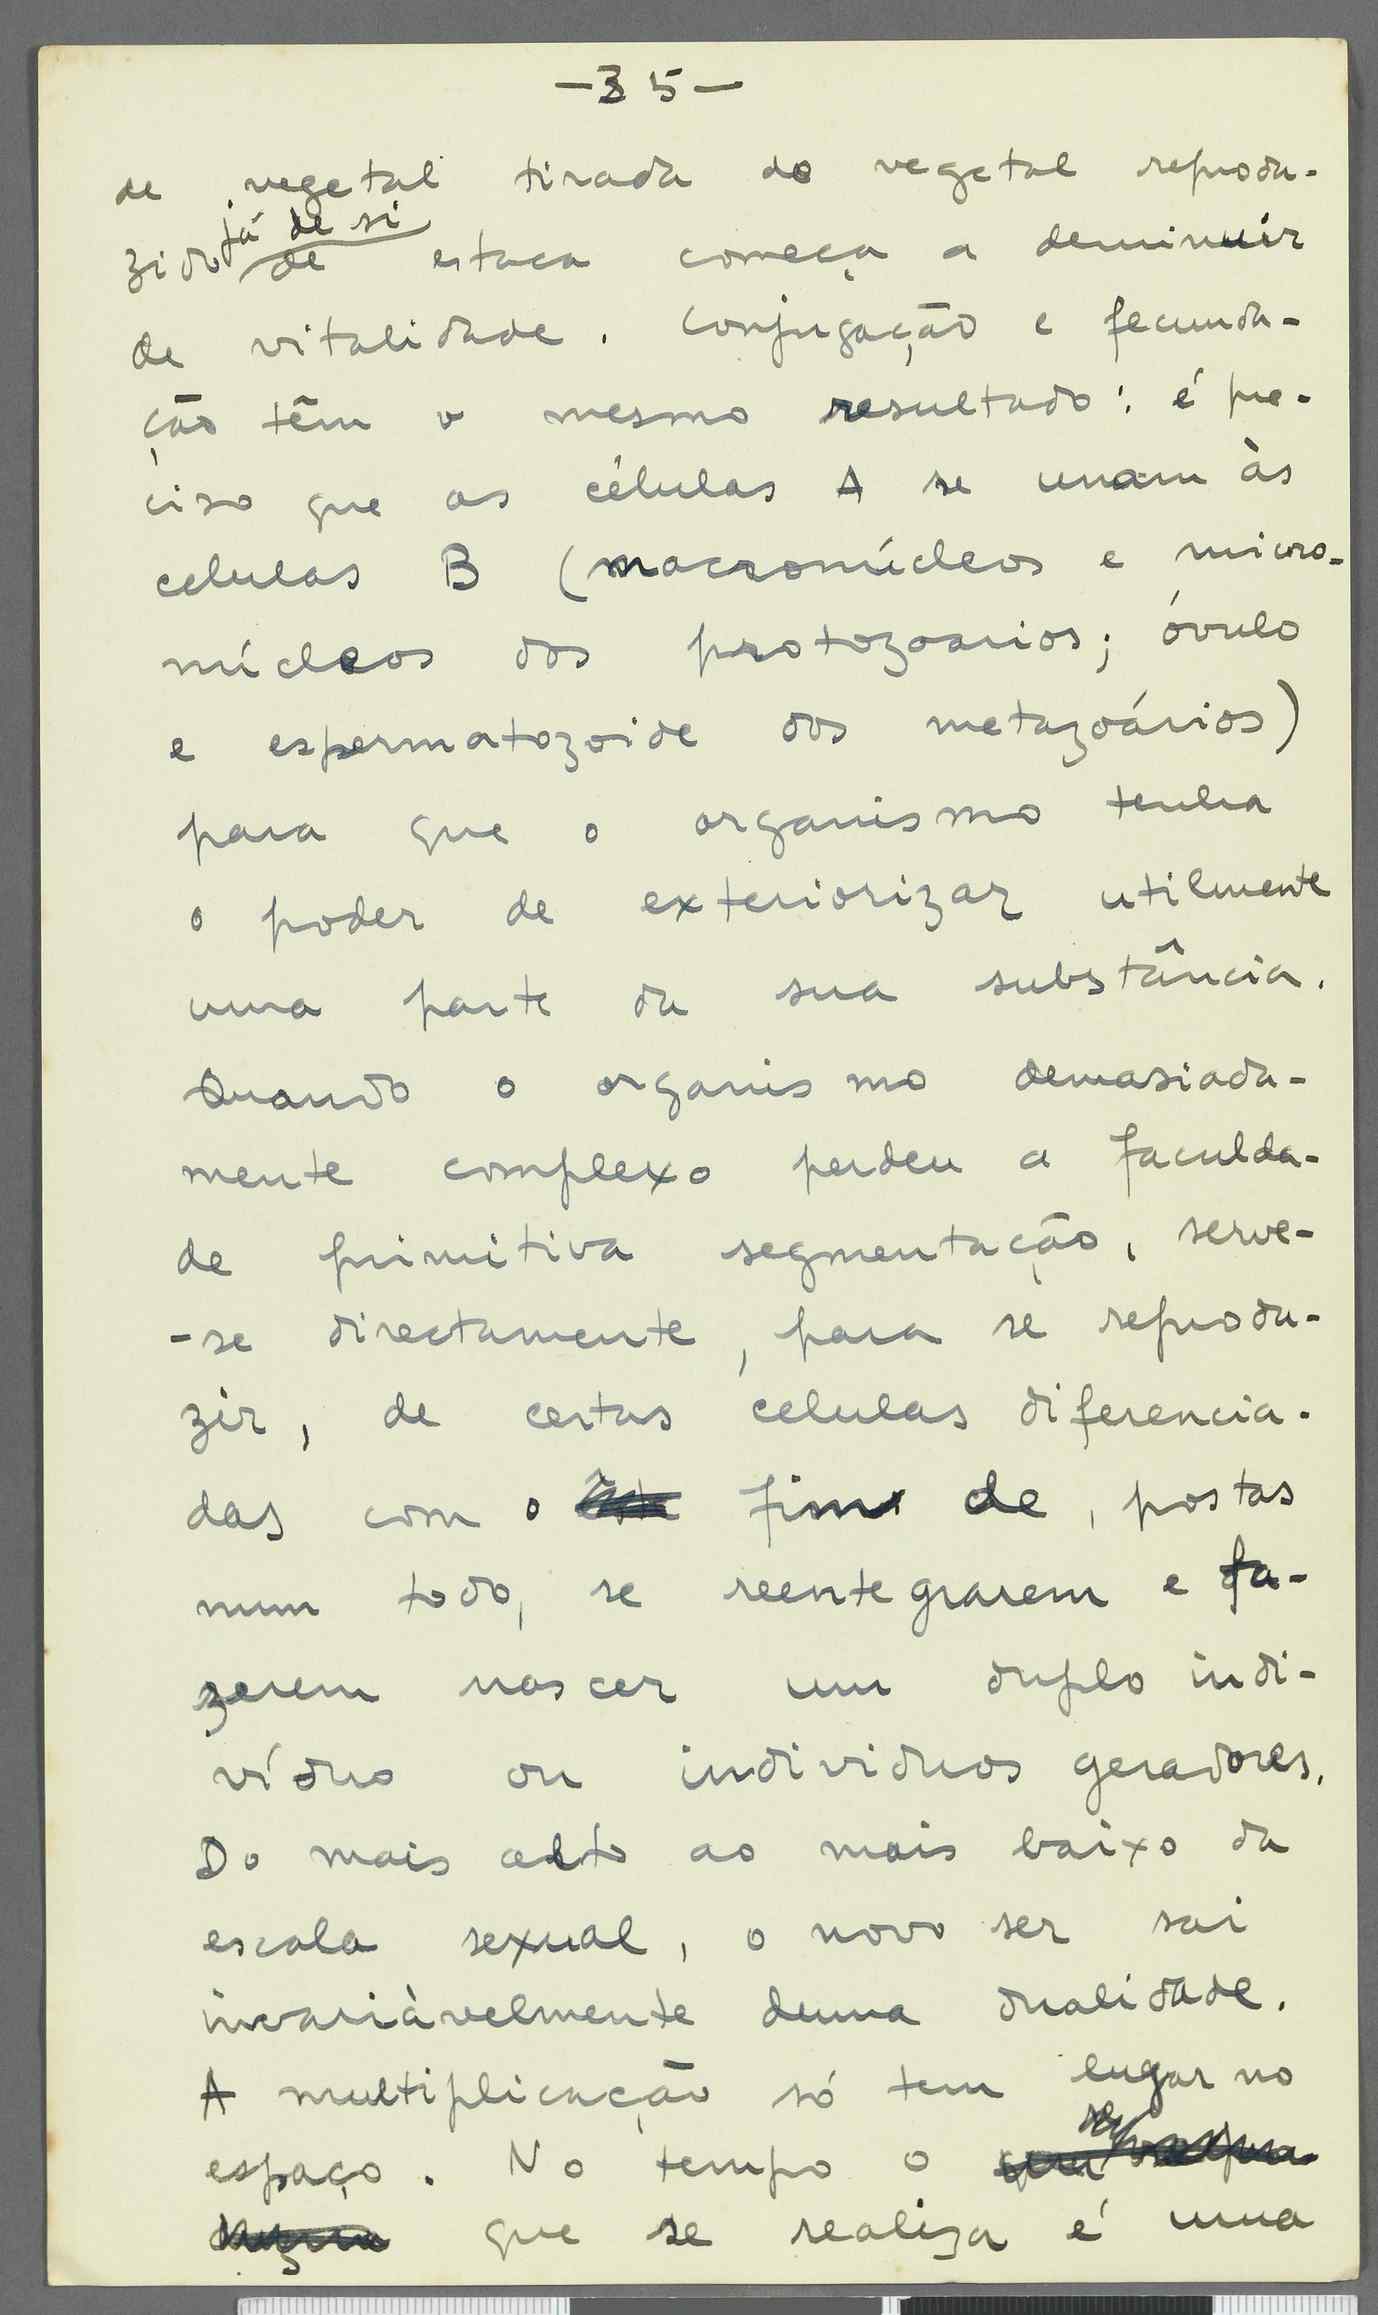 —35—
de vegetal tirada do vegetal reprodu-
já de si
zido de estaca começa a deminuir
de vitalidade. Conjugação e fecunda-
ção têm o mesmo resultado: é pre-
ciso que as células A se unam às
celulas B (macronúcleos e micro-
núcleos dos protozoarios; óvulo
e espermatozoide dos metazoários)
para que o organismo tenha
o poder de exteriorizar utilmente
uma parte da sua substância.
Quando o organismo demasiada-
mente complexo perdeu a faculda-
de primitiva segmentação, serve-
-se directamente, para se reprodu-
zir, de certas celulas diferencia-
das com o fim de, postas
num todo, se reentegrarem e fa-
zerem nascer um duplo indi-
víduo ou individuos geradores.
Do mais alto ao mais baixo da
escala sexual, o novo ser sai
invariàvelmente duma dualidade.
A multiplicação só tem lugar no
espaço. No tempo o
que se realiza é uma